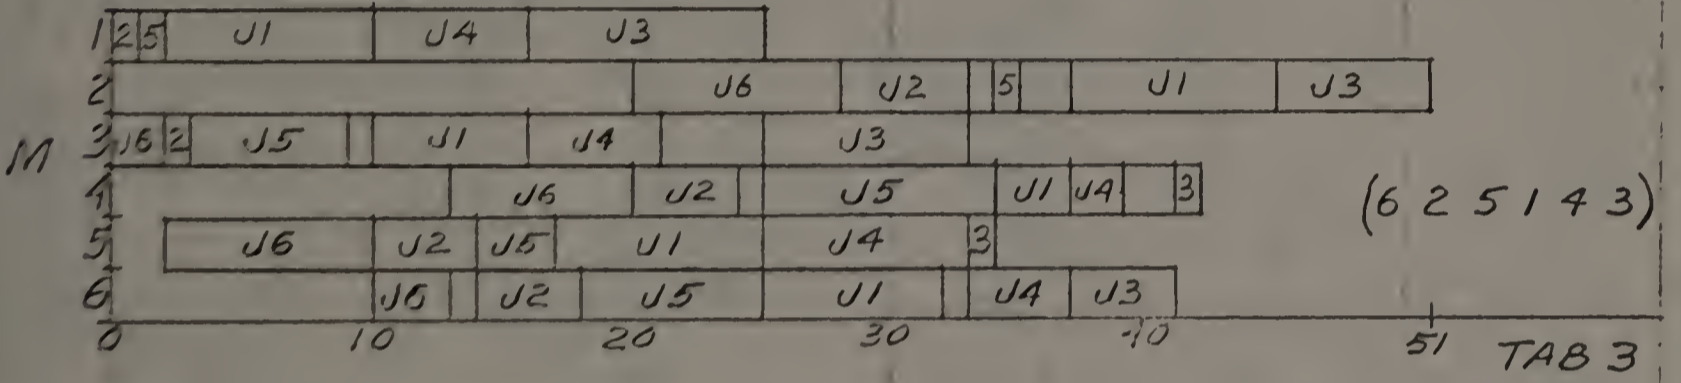 1 2 5 J1 J4 J3
2 J6 J2 5 J1 J3
3 J6 2 J5 J1 J4 J3
M
4 J6 J2 J5 J1 J4 3
(6 2 5 1 4 3)
5 J6 J2 J5 J1 J4 3
6 J6 J2 J5 J1 J4 J3
0 10 20 30 40 51
TAB 3